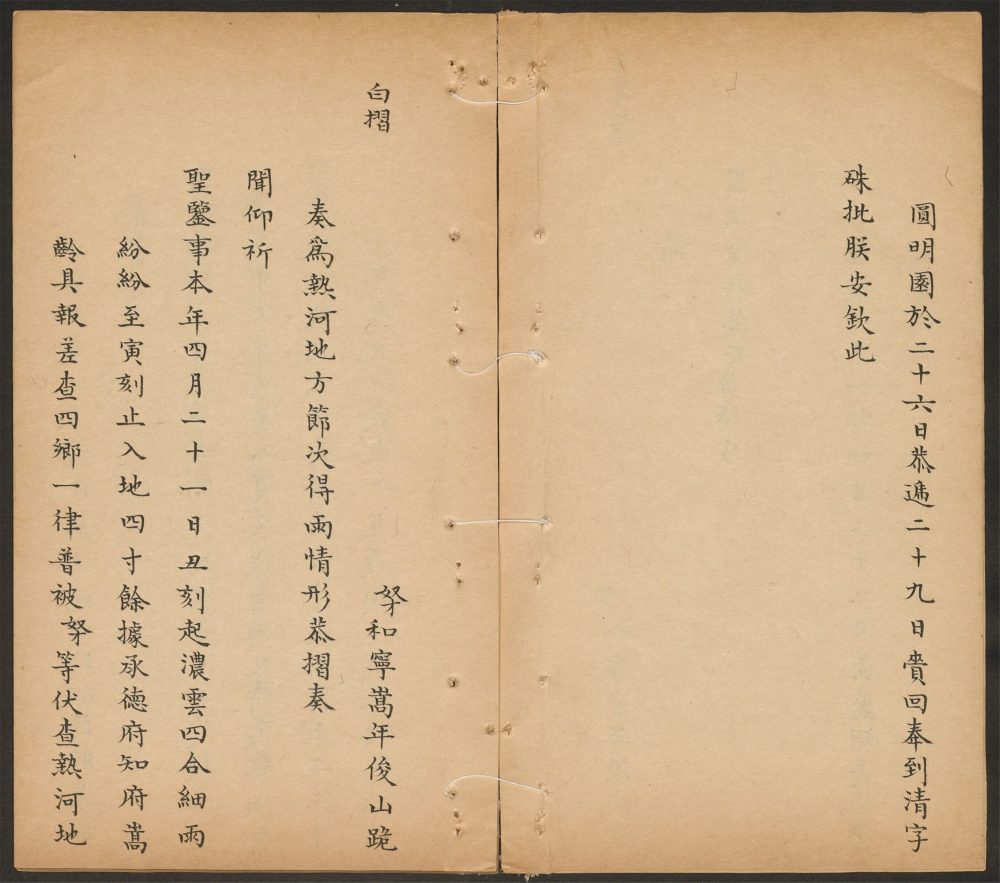 圓明園於二十六日恭遞二十九日賷回奉到清字
硃批朕安欽此
白摺
奴才和寧嵩年俊山跪
奏爲熱河地方節次得雨情形恭摺奏
聞仰祈
聖鑒事本年四月二十一日丑刻起濃雲四合細雨
紛紛至寅刻止入地四寸餘據承德府知府嵩
齡具報差查四鄉一律普被奴才等伏查熱河地